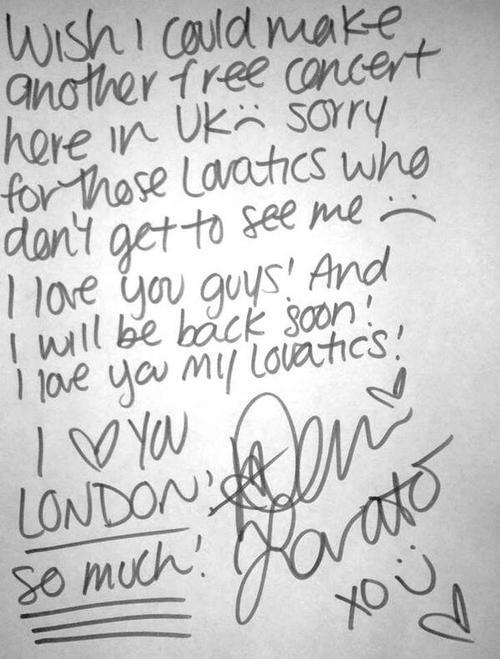 Wish I could make
another free concert
here in UK :( sorry
for those Lovatics who
don't get to see me :(
I love you guys! And
I will be back soon!
I love you my Lovatics!
I ♡ YOU
LONDON!
so much!
Demi ♡
Lovato
xo :) ♡